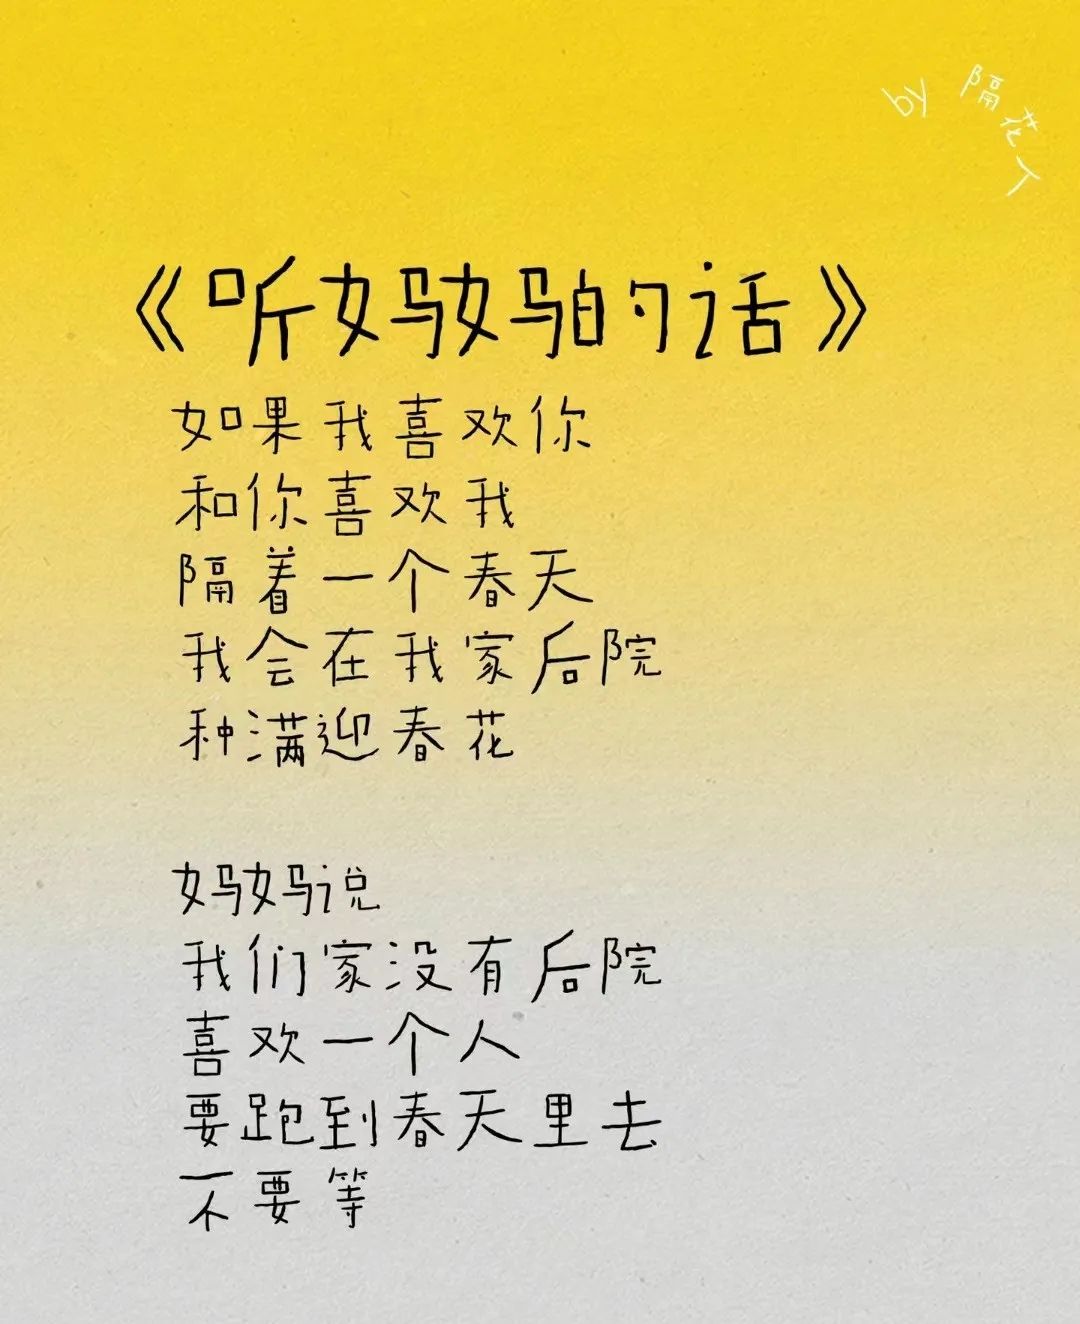 by 隔花人
《听妈妈的话》
如果我喜欢你
和你喜欢我
隔着一个春天
我会在我家后院
种满迎春花
妈妈说
我们家没有后院
喜欢一个人
要跑到春天里去
不要等